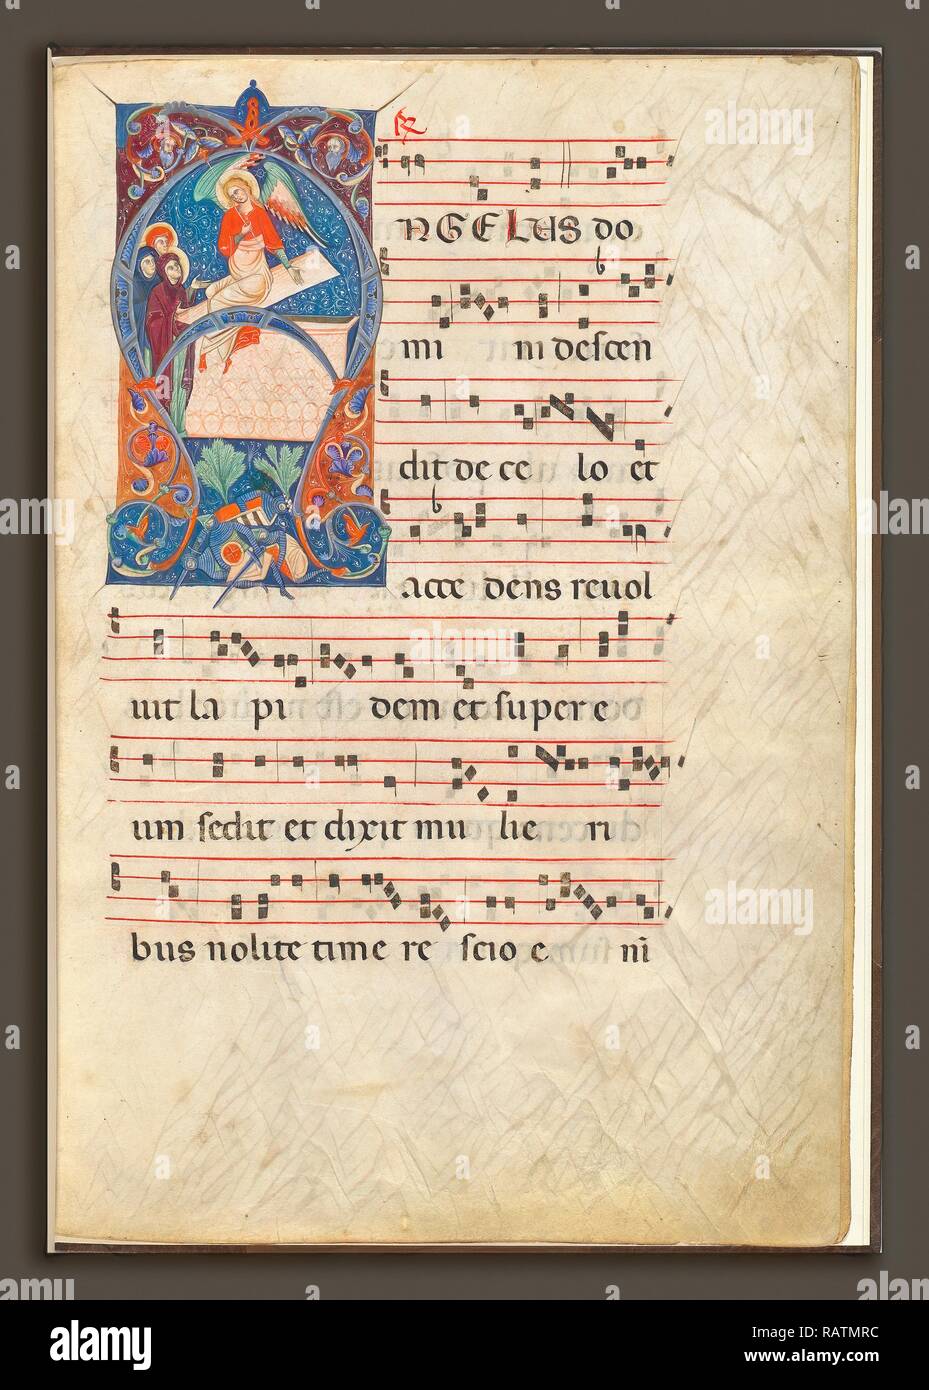 NGELUS do
mi ni descen
dit de ce lo et
acce dens revol
vit la pi dem et super e
um sedit et dixit mu lie ri
bus nolite time re scio e ni
alamy
Image ID: RATMRC
www.alamy.com